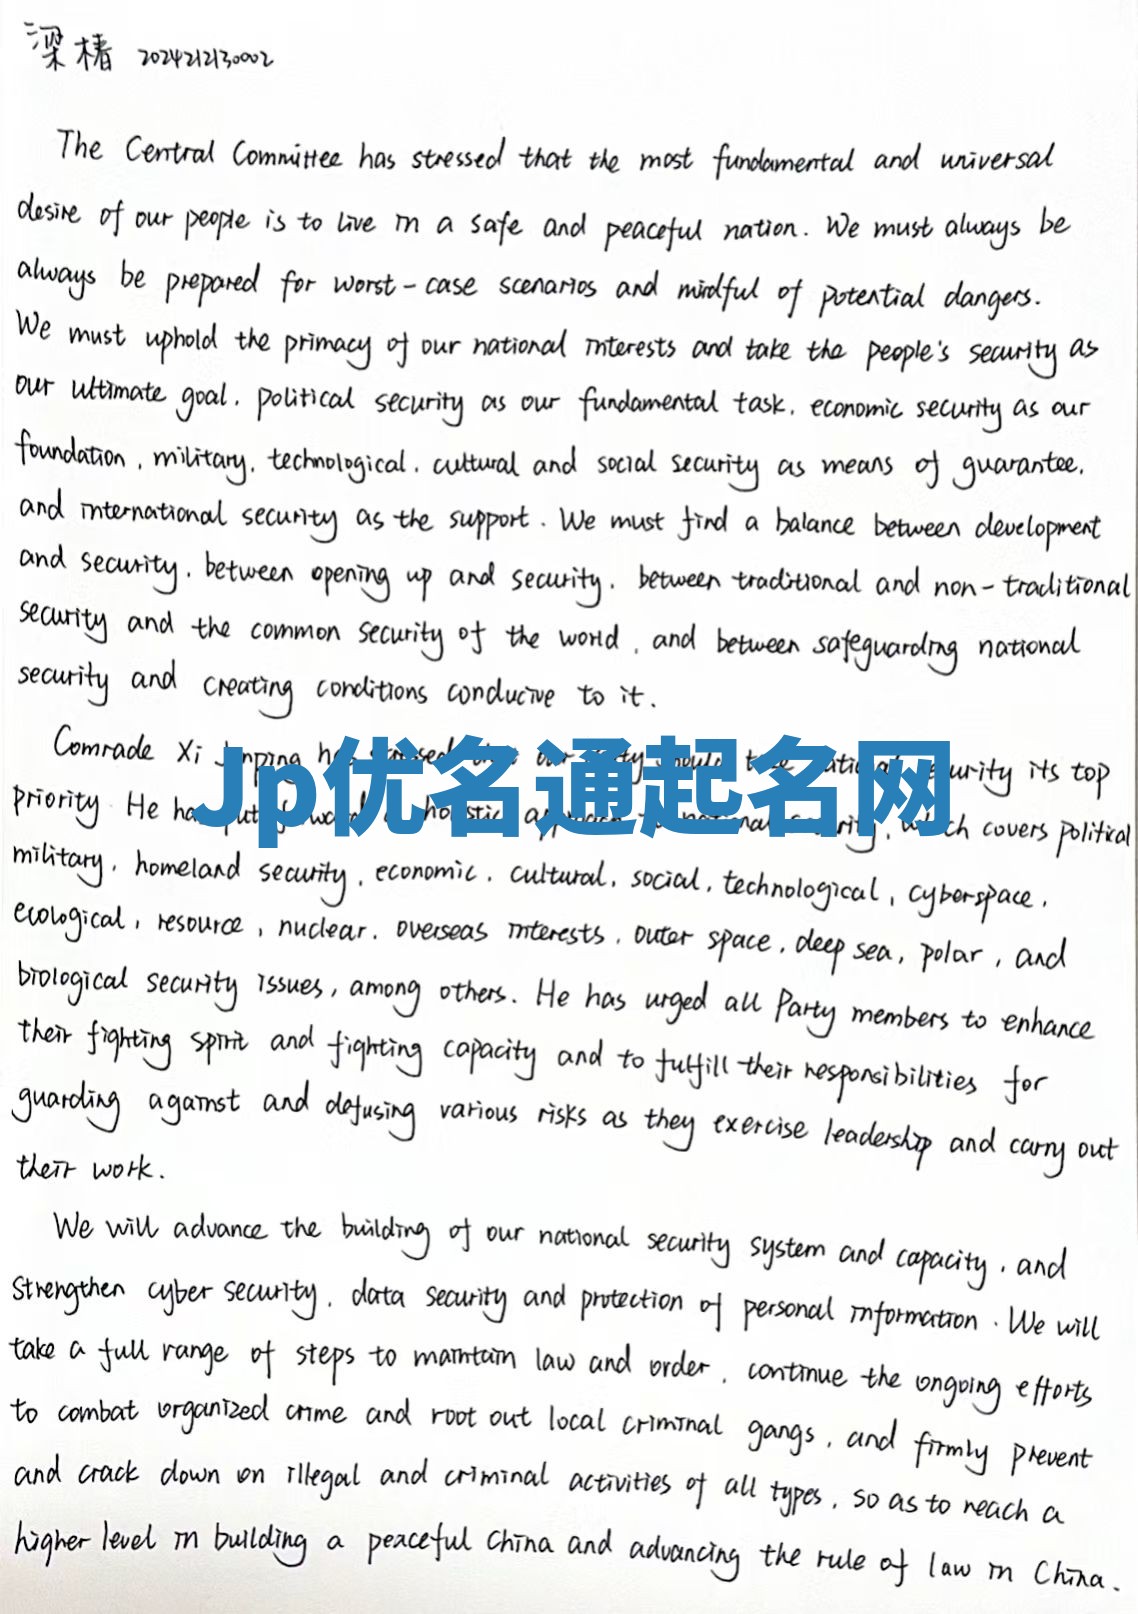 梁椿 2024212130002
The Central Committee has stressed that the most fundamental and universal
desire of our people is to live in a safe and peaceful nation. We must always be
always be prepared for worst-case scenarios and mindful of potential dangers.
We must uphold the primacy of our national interests and take the people's security as
our ultimate goal, political security as our fundamental task, economic security as our
foundation, military, technological, cultural and social security as means of guarantee,
and international security as the support. We must find a balance between development
and security, between opening up and security, between traditional and non-traditional
security and the common security of the world, and between safeguarding national
security and creating conditions conducive to it.
Comrade Xi Jinping has stressed that our Party should take national security its top
Jp优名通起名网
priority. He has put forward a holistic approach to national security, which covers political
military, homeland security, economic, cultural, social, technological, cyberspace,
ecological, resource, nuclear, overseas interests, outer space, deep sea, polar, and
biological security issues, among others. He has urged all Party members to enhance
their fighting spirit and fighting capacity and to fulfill their responsibilities for
guarding against and defusing various risks as they exercise leadership and carry out
their work.
We will advance the building of our national security system and capacity, and
strengthen cyber security, data security and protection of personal information. We will
take a full range of steps to maintain law and order, continue the ongoing efforts
to combat organized crime and root out local criminal gangs, and firmly prevent
and crack down on illegal and criminal activities of all types, so as to reach a
higher level in building a peaceful China and advancing the rule of law in China.